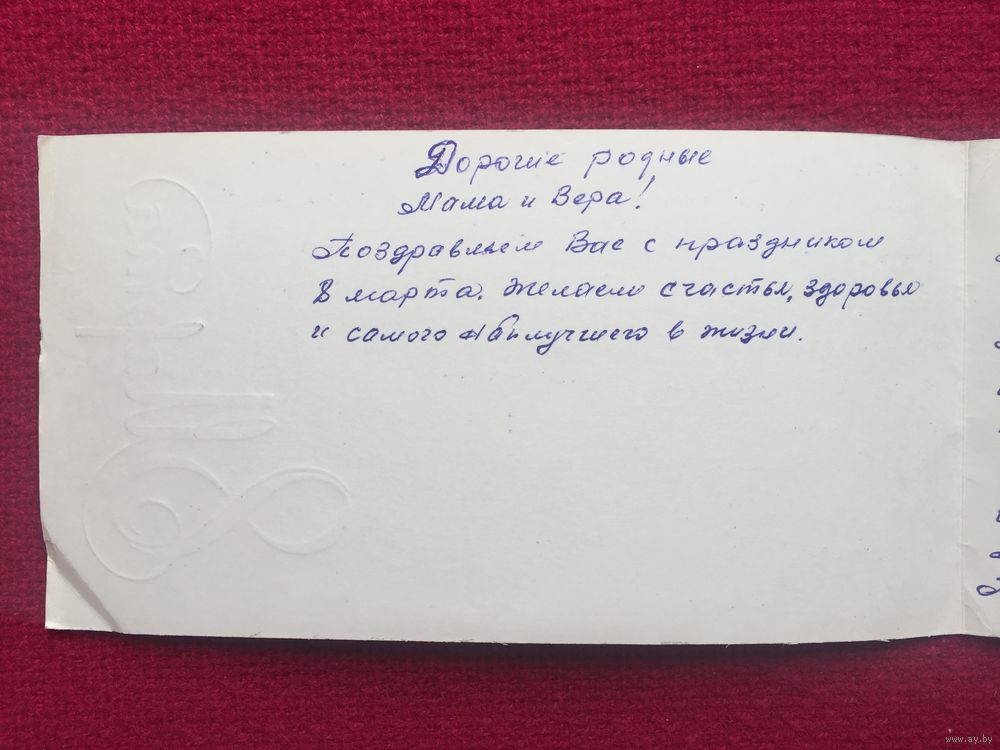 Дорогие родные
Мама и Вера!
Поздравляем Вас с праздником
8 марта. Желаем счастья, здоровья
и самого наилучшего в жизни.
www.ay.by